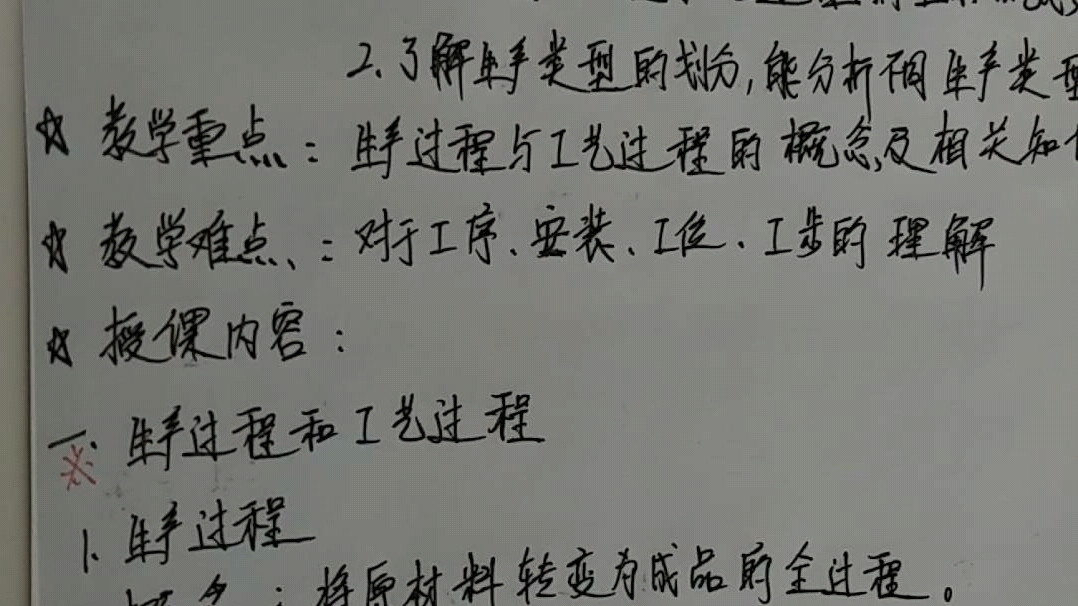 2、了解生产类型的划分,能分析不同生产类型
☆ 教学重点：生产过程与工艺过程的概念及相关知
☆ 教学难点、：对于工序、安装、工位、工步的理解
☆ 授课内容：
一、生产过程和工艺过程
※
1、生产过程
：将原材料转变为成品的全过程。